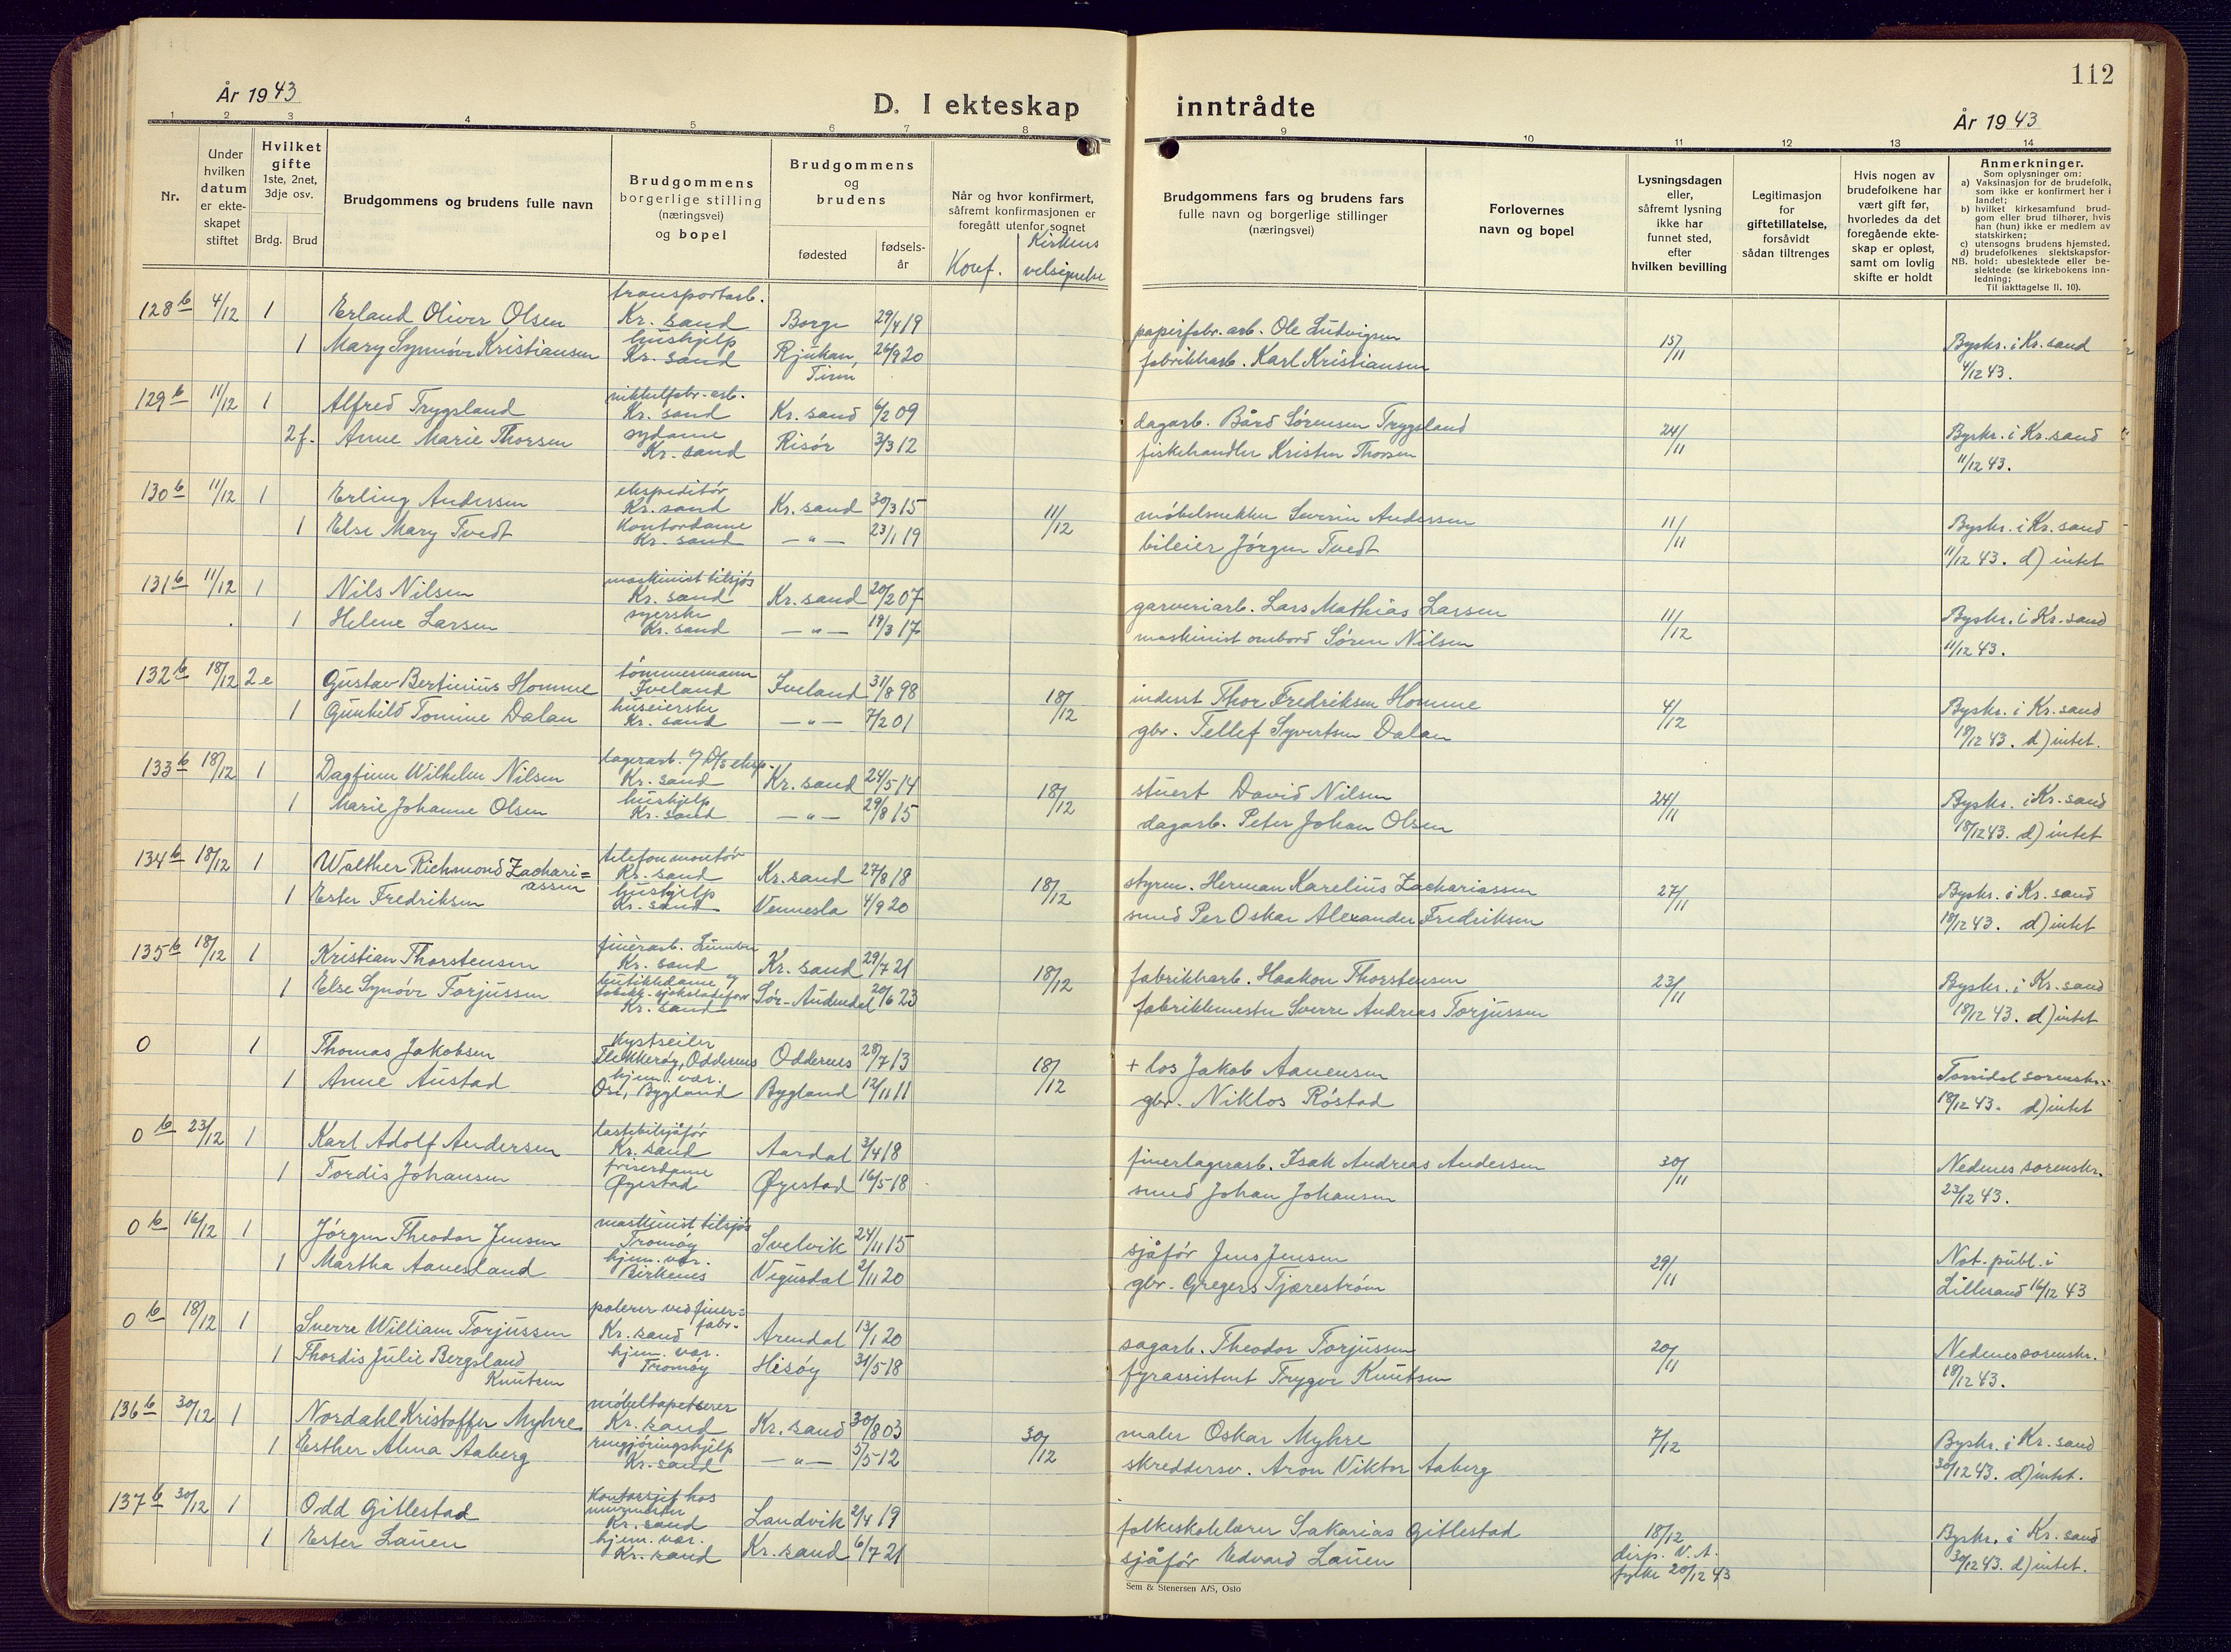 112
År 1943
D. I ekteskap inntrådte
År 1943
1 2 3 4 5 6 7 8 9 10 11 12 13 14
Nr.
Under hvilken datum er ekteskapet stiftet
Hvilket gifte 1ste, 2net, 3dje osv.
Brdg. Brud
Brudgommens og brudens fulle navn
Brudgommens borgerlige stilling (næringsvei) og bopel
Brudgommens og brudens
fødested
fødsels-år
Når og hvor konfirmert, såfremt konfirmasjonen er foregått utenfor sognet
Konf. Kirkens velsignelse
Brudgommens fars og brudens fars fulle navn og borgerlige stillinger (næringsvei)
Forlovernes navn og bopel
Lysningsdagen eller, såfremt lysning ikke har funnet sted, efter hvilken bevilling
Legitimasjon for giftetillatelse, forsåvidt sådan tiltrenges
Hvis nogen av brudefolkene har vært gift før, hvorledes da det foregående ekteskap er opløst, samt om lovlig skifte er holdt
Anmerkninger.
Som oplysninger om:
a) Vaksinasjon for de brudefolk, som ikke er konfirmert her i landet;
b) hvilket kirkesamfund brudgom eller brud tilhører, hvis han (hun) ikke er medlem av statskirken;
c) utensogns brudens hjemsted.
d) brudefolkenes slektskapsforhold: ubeslektede eller beslektede (se kirkebokens innledning;
NB.
Til iakttagelse II. 10).
128 b 4/12 1 Erland Oliver Olsen transportarb. Kr. sand Borge 29/4 19 papirfabr. arb. Ole Ludvigsen 15/11 Byskr. i Kr. sand
1 Mary Synnöve Kristiansen hushjelp Kr. sand Rjukan, Tinn 26/9 20 fabrikkarb. Karl Kristiansen 4/12 43.
129 b 11/12 1 Alfred Trygsland nikkelfabr. arb. Kr. sand Kr. sand 6/2 09 dagarb. Bård Sörensen Trygsland 24/11 Byskr. i Kr. sand
2 f. Anne Marie Thorsen sydame Kr. sand Risör 3/3 12 fiskehandler Kristen Thorsen 11/12 43.
130 b 11/12 1 Erling Andersen ekspeditör Kr. sand Kr. sand 30/3 15 11/12 möbelsnekker Severin Andersen 11/11 Byskr. i Kr. sand
1 Else Mary Tvedt Kontordame Kr. sand — " — 23/1 19 bileier Jörgen Tvedt 11/12 43. d) intet
131 b 11/12 1 Nils Nilsen maskinist tilsjös Kr. sand Kr. sand 20/2 07 garveriarb. Lars Mathias Larsen 11/12 Byskr. i Kr. sand
1 Helene Larsen syerske Kr. sand — " — 19/3 17 maskinist ombord Sören Nilsen 11/12 43.
132 b 18/12 2 e Gustav Bertinius Homme tömmermann Iveland Iveland 31/8 98 18/12 inderst Thor Fredriksen Homme 4/12 Byskr. i Kr. sand
1 Gunhild Tomine Dalan huseierske Kr. sand — " — 7/2 01 gbr. Tellef Syvertsen Dalan 18/12 43. d) intet.
133 b 18/12 1 Dagfinn Wilhelm Nilsen lagerarb. Kr. sand Kr. sand 24/5 14 18/12 stuert David Nilsen 24/11 Byskr. i Kr. sand
1 Marie Johanne Olsen hushjelp Kr. sand — " — 29/8 15 dagarb. Peter Johan Olsen 18/12 43. d) intet
134 b 18/12 1 Walther Richmond Zachari=assen telefonmontör Kr. sand Kr. sand 27/8 18 18/12 styrm. Herman Karelius Zachariassen 27/11 Byskr. i Kr. sand
1 Ester Fredriksen hushjelp Kr. sand Vennesla 4/9 20 smed Per Oskar Alexander Fredriksen 18/12 43. d) intet
135 b 18/12 1 Kristian Thorstensen finérarb. Kr. sand Kr. sand 29/7 21 18/12 fabrikkarb. Haakon Thorstensen 23/11 Byskr. i Kr. sand
1 Else Synöve Torjussen butikkdame Kr. sand Sör-Audnedal 20/6 23 fabrikkmester Sverre Andreas Torjussen 18/12 43. d) intet
0 1 Thomas Jakobsen Kystseiler Flekkeröy, Oddernes Oddernes 28/7 13 18/12 + los Jakob Aanensen Torridal sorenskr.
1 Anne Austad hjem. vær. Ose, Bygland Bygland 12/11 11 gbr. Niklos Röstad 18/12 43. d) intet
0 b 23/12 1 Karl Adolf Andersen lastebilsjåför Kr. sand Aardal 3/4 18 finerlagerarb. Isak Andreas Andersen 30/11 Nedenes sorenskr.
1 Tordis Johansen friserdame Øyestad Øyestad 16/5 18 smed Johan Johansen 23/12 43.
0 b 16/12 1 Jörgen Theodor Jensen maskinist tilsjös Tromöy Svelvik 24/11 15 sjåför Jens Jensen 29/11 Not. publ. i
1 Martha Aanesland hjem. vær. Birkenes Vegusdal 2/11 20 gbr. Gregers Tjæreström Lillesand 16/12 43
0 b 18/12 1 Sverre William Torjussen polerer ved finer=fabr. Kr. sand Arendal 13/1 20 sagarb. Theodor Torjussen 20/11 Nedenes sorenskr.
1 Thordis Julie Bergsland Knutsen hjem. vær. Tromöy Hisöy 31/5 18 fyrassistent Trygve Knutsen 18/12 43.
136 b 30/12 1 Nordahl Kristoffer Myhre möbeltapetserer Kr. sand Kr. sand 30/8 03 30/12 maler Oskar Myhre 7/12 Byskr. i Kr. sand
1 Esther Alma Aaberg rengjöringshjelp Kr. sand — " — 5/5 12 skreddersv. Aron Viktor Aaberg 30/12 43. d) intet.
137 b 30/12 1 Odd Gitlestad Kontorsjef hos murmester Kr. sand Landvik 2/4 19 folkeskolelærer Sakarias Gitlestad 18/12 Byskr. i Kr. sand
1 Ester Lauen hjem. vær. Kr. sand Kr. sand 6/7 21 sjåför Edvard Lauen disp. V. A. fylke 20/12 43 30/12 43. d) intet.
Sem & Stenersen A/S, Oslo